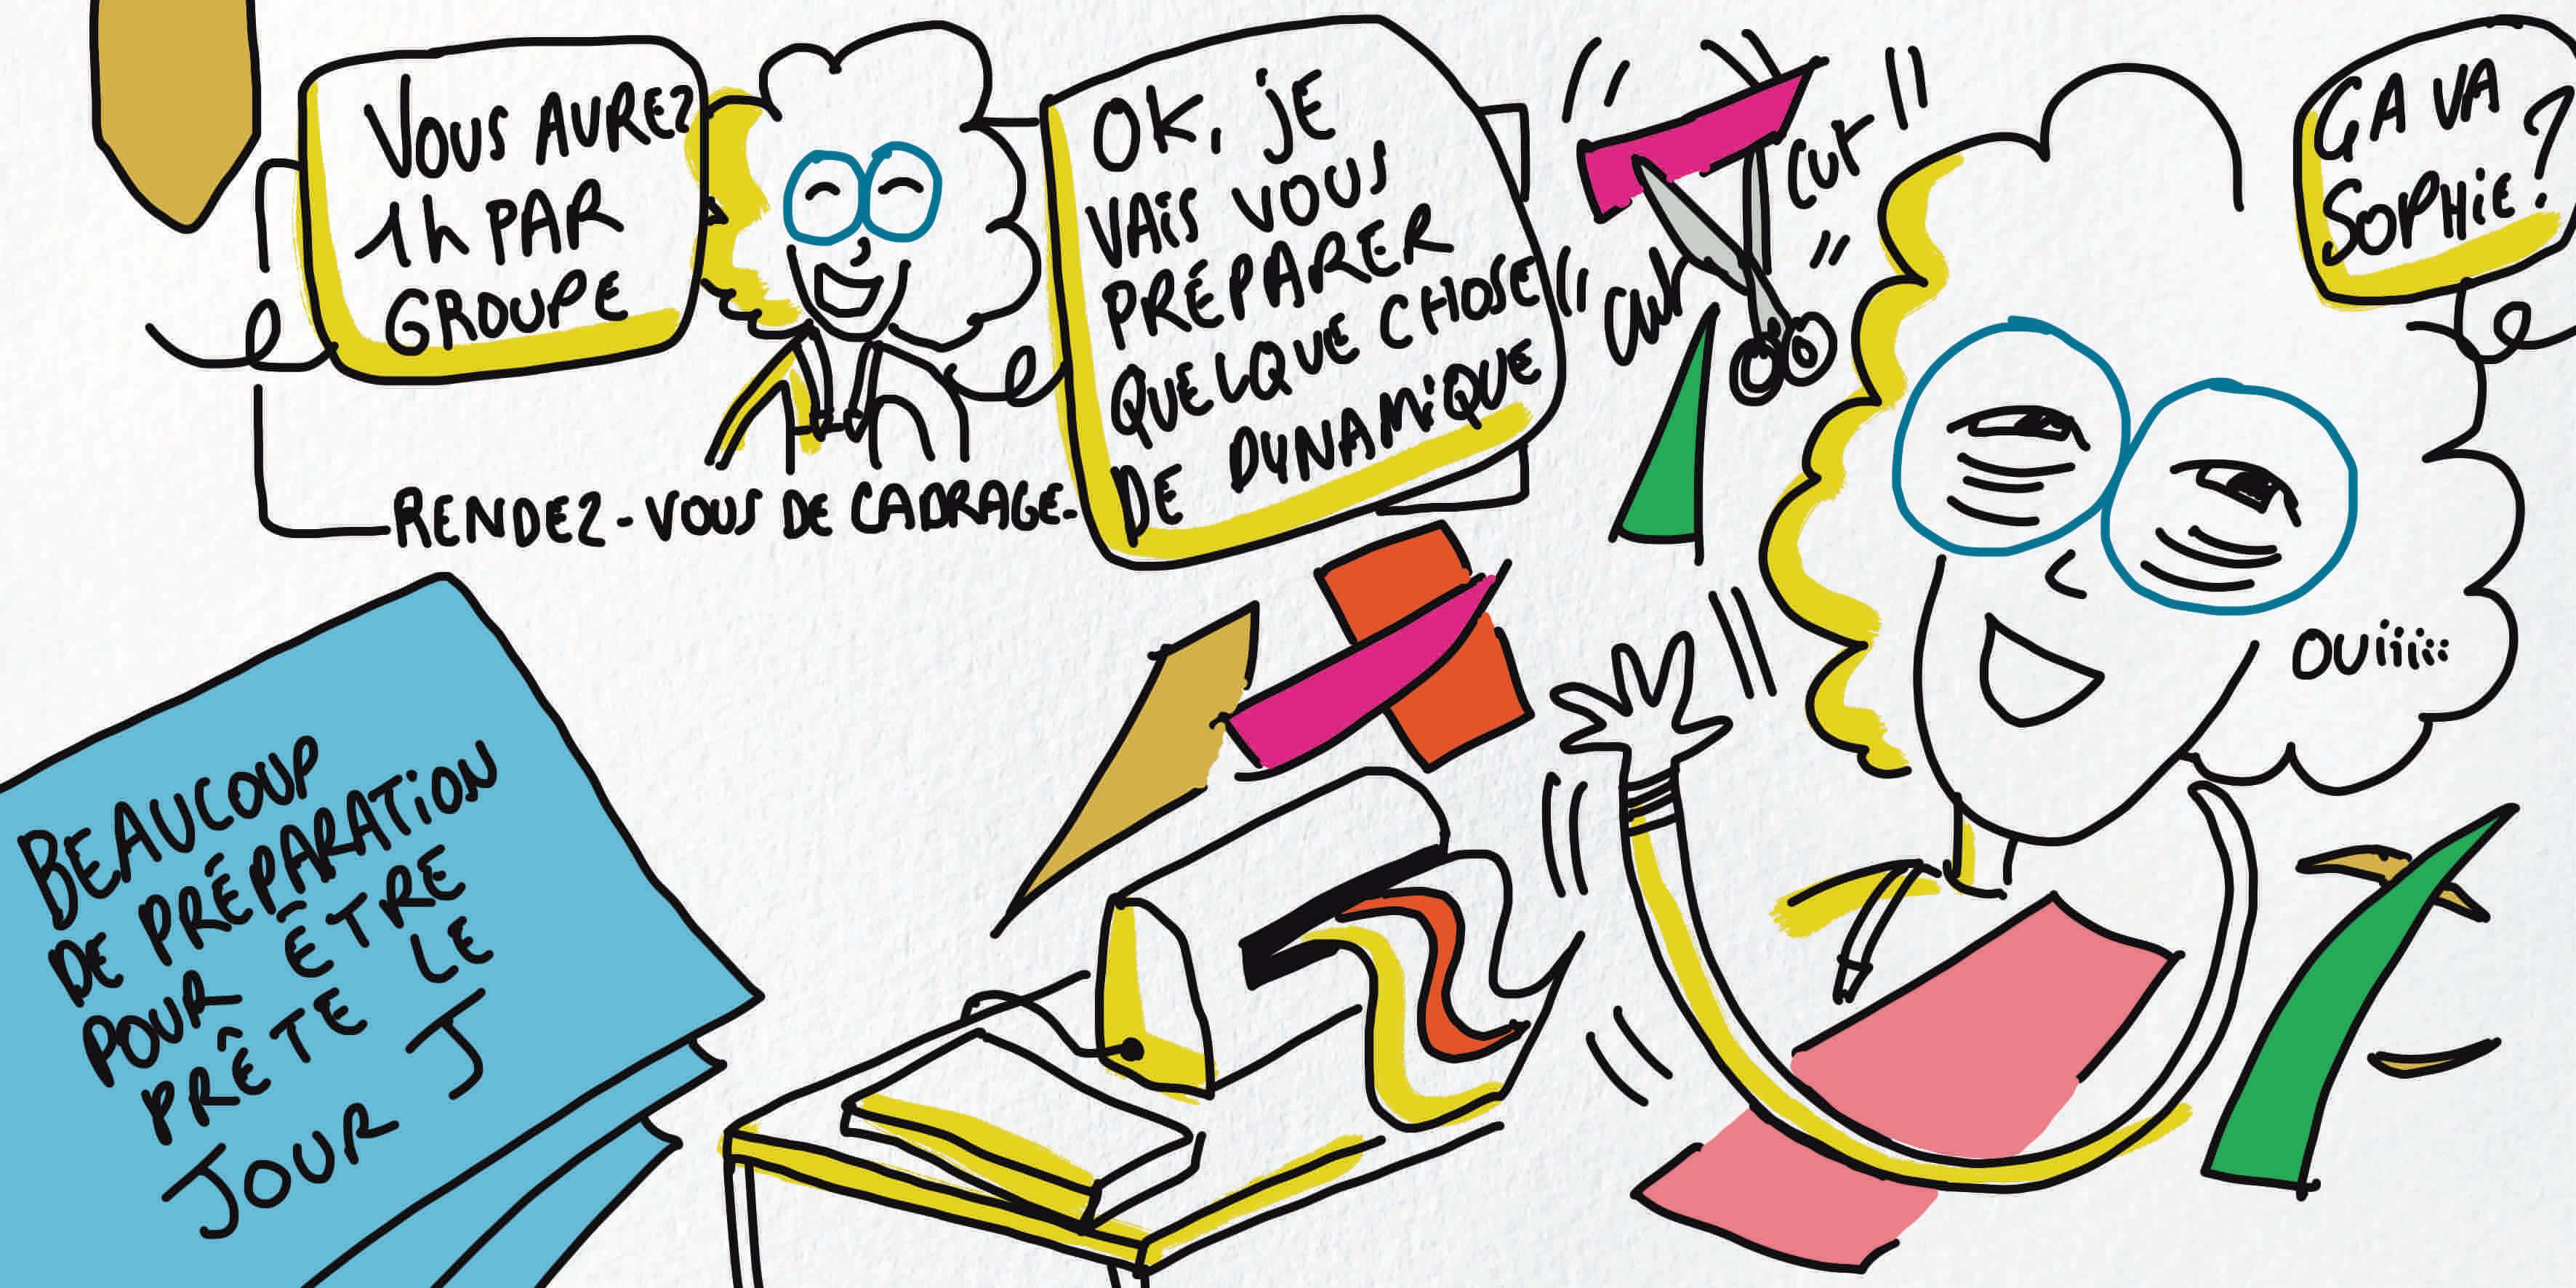 VOUS AUREZ
1h PAR
GROUPE
OK, JE
VAIS VOUS
PRÉPARER
QUELQUE CHOSE
DE DYNAMIQUE
RENDEZ-VOUS DE CADRAGE.
CUT
CUT
ÇA VA
SOPHIE?
OUiiiiii
BEAUCOUP
DE PRÉPARATION
POUR ÊTRE
PRÊTE LE
JOUR J